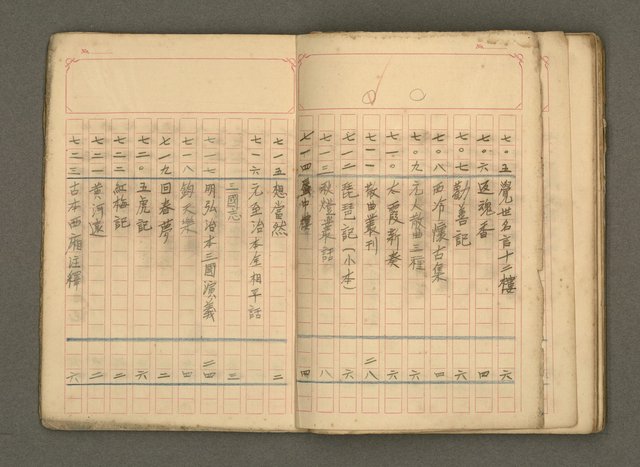 No.
七〇五 覺世名言十二樓 六
七〇六 返魂香 四
七〇七 勸善記 六
七〇八 西泠懷古集 四
七〇九 元人散曲三種 二
七一〇 太霞新奏 六
七一一 散曲叢刊 二八
七一二 琵琶記(小本) 六
七一三 秋燈叢話 八
七一四 蜃中樓 四
No.
七一五 想當然 二
七一六 元至治本全相平話
三國志 三
七一七 明弘治本三國演義 二四
七一八 鈞天樂 二
七一九 回春夢 二
七二〇 五虎記 六
七二二 紅梅記 二
七二一 黃河遠 二
七二三 古本西廂注釋 六